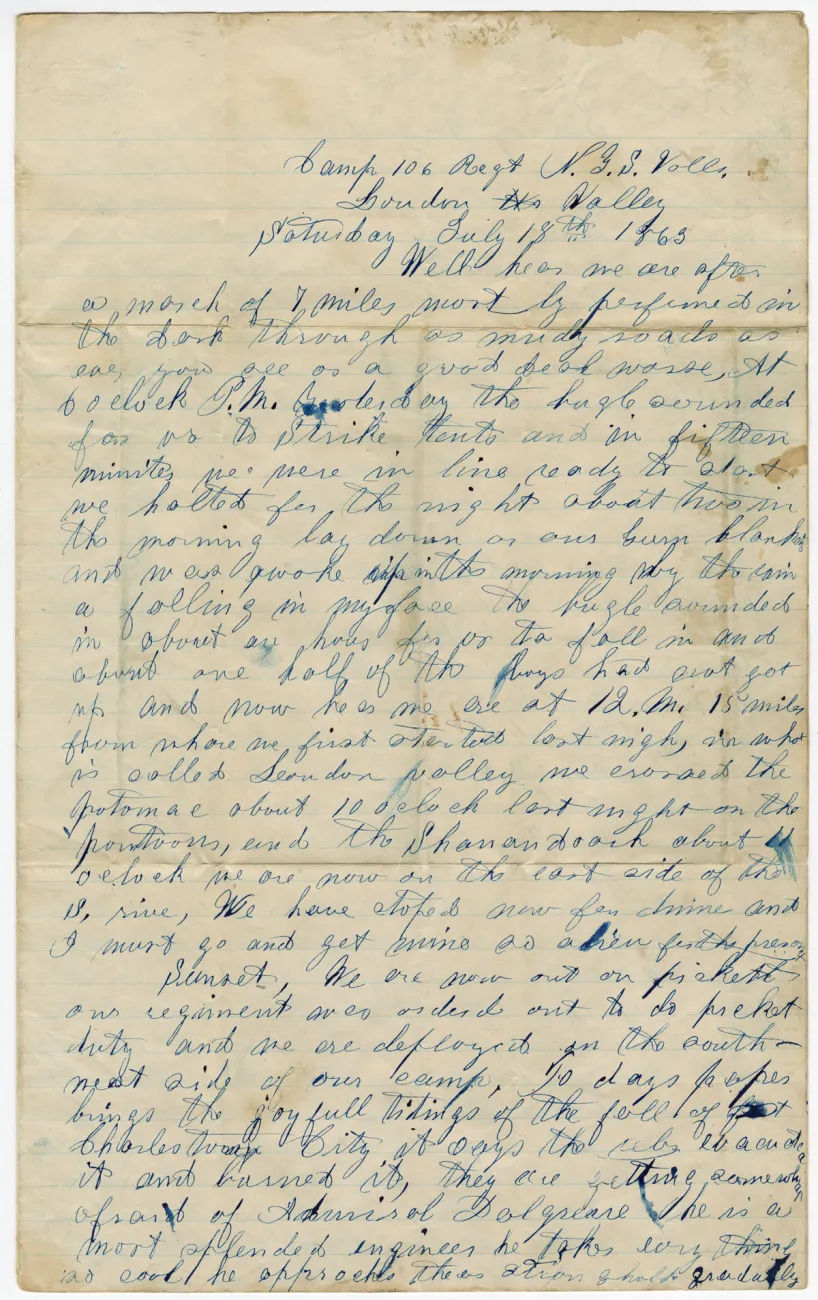 Camp 106 Regt N.Y.S. Volls.
Loudon Valley
Saturday July 18th 1863
Well hear we are after
a march of 7 miles most ly perfumed in
the dark through as mudy roads as
ever you see or a good deal worse, At
6 oclock P.M. Yesterday the bugle sounded
for us to Strike tents and in fifteen
minites we were in line ready to start
we halted for the night about two in
the morning lay down on our Gum blankets
and was awoke up in the morning by the rain
a falling in my face the bugle sounded
in about an hour for us to fall in and
about one half of the boys had not got
up and now hear we are at 12. M. 15 miles
from where we first started last nigh, in what
is called Loundon valley we crossed the
potomac about 10 oclock last night on the
pontoons, and the Shanandoaah about 11
oclock we are now on the east side of the
S. rive, We have stoped now for dinne and
I must go and get mine so adieu for the present
Sunset, We are now out on pickett
our regiment was orderd out to do picket
duty and we are deployed on the south-
west side of our camp. To days papers
brings the joyfull tidings of the fall of
Charlestown City it says the rebs evacuated
it and burned it, they are getting somewhat
afraid of Admirol Dalgreare he is a
most splended engineer he takes evry thing
so cool he approachs theas strong holds gradually